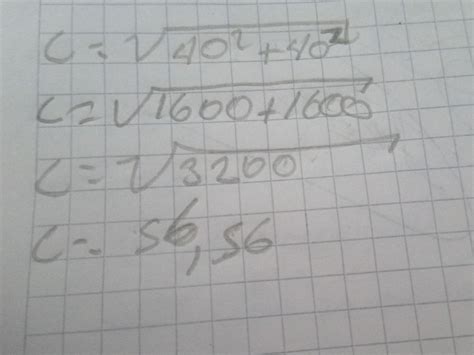 c = √40² + 40²
c = √1600 + 1600
c = √3200
c = 56,56